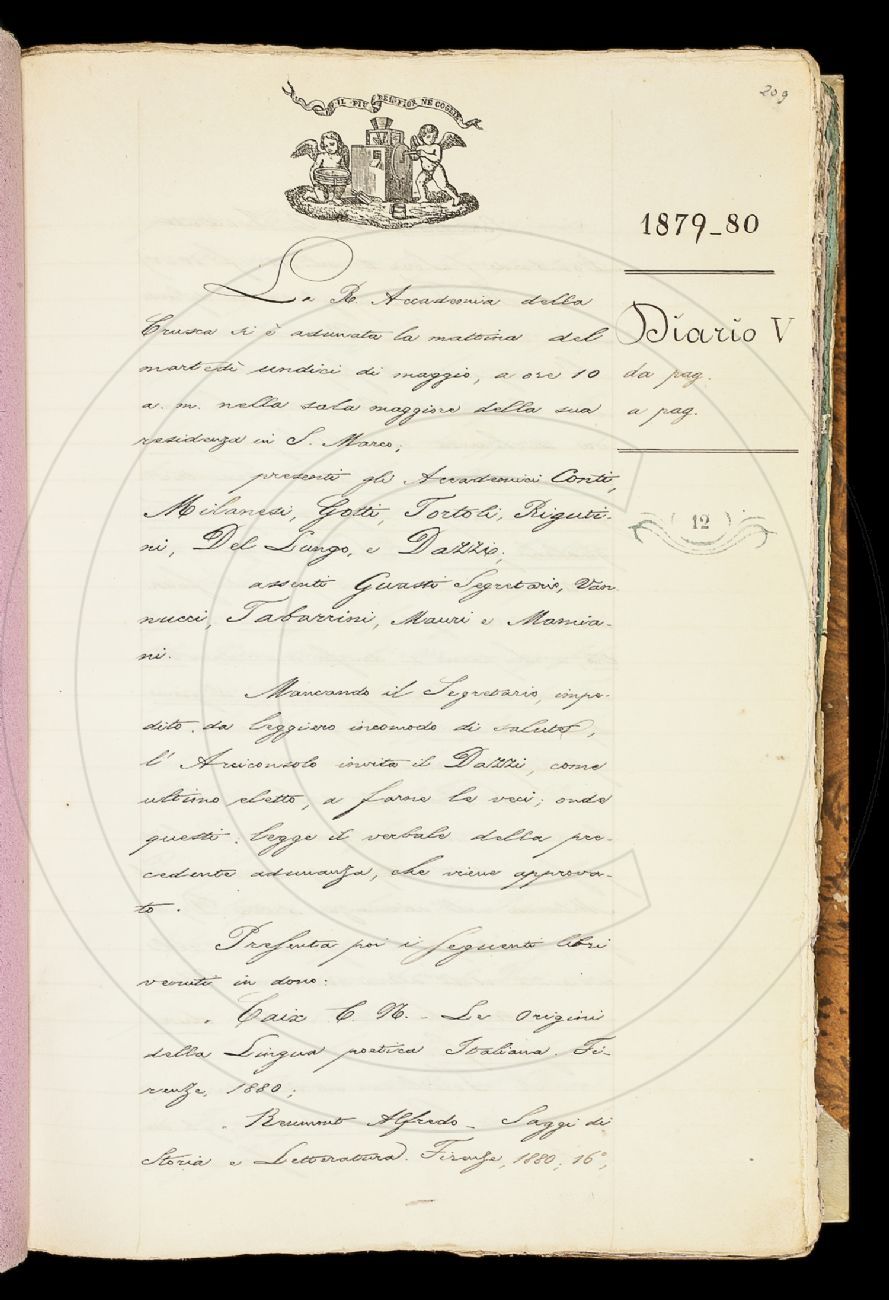 IL PIV BEL FIOR NE COGLIE
209
1879_80
Diario V
da pag.
a pag.
12
La R. Accademia della
Crusca si è adunata la mattina del
martedì undici di maggio, a ore 10
a. m. nella sala maggiore della sua
residenza in S. Marco;
presenti gli Accademici Conti,
Milanesi, Gotti, Tortoli, Riguti-
ni, Del Lungo, e Dazzi;
assenti Guasti Segretario, Van-
nucci, Tabarrini, Mauri e Mamia-
ni.
Mancando il Segretario, impe-
dito da leggiero incomodo di salute,
l' Arciconsolo invita il Dazzi, come
ultimo eletto, a farne le veci; onde
questi legge il verbale della pre-
cedente adunanza, che viene approva-
to.
Presenta poi i seguenti libri
venuti in dono:
Caix C. N. - Le Origini
della Lingua poetica Italiana. Fi-
renze, 1880;
Reumont Alfredo - Saggi di
Storia e Letteratura. Firenze, 1880, 16°,